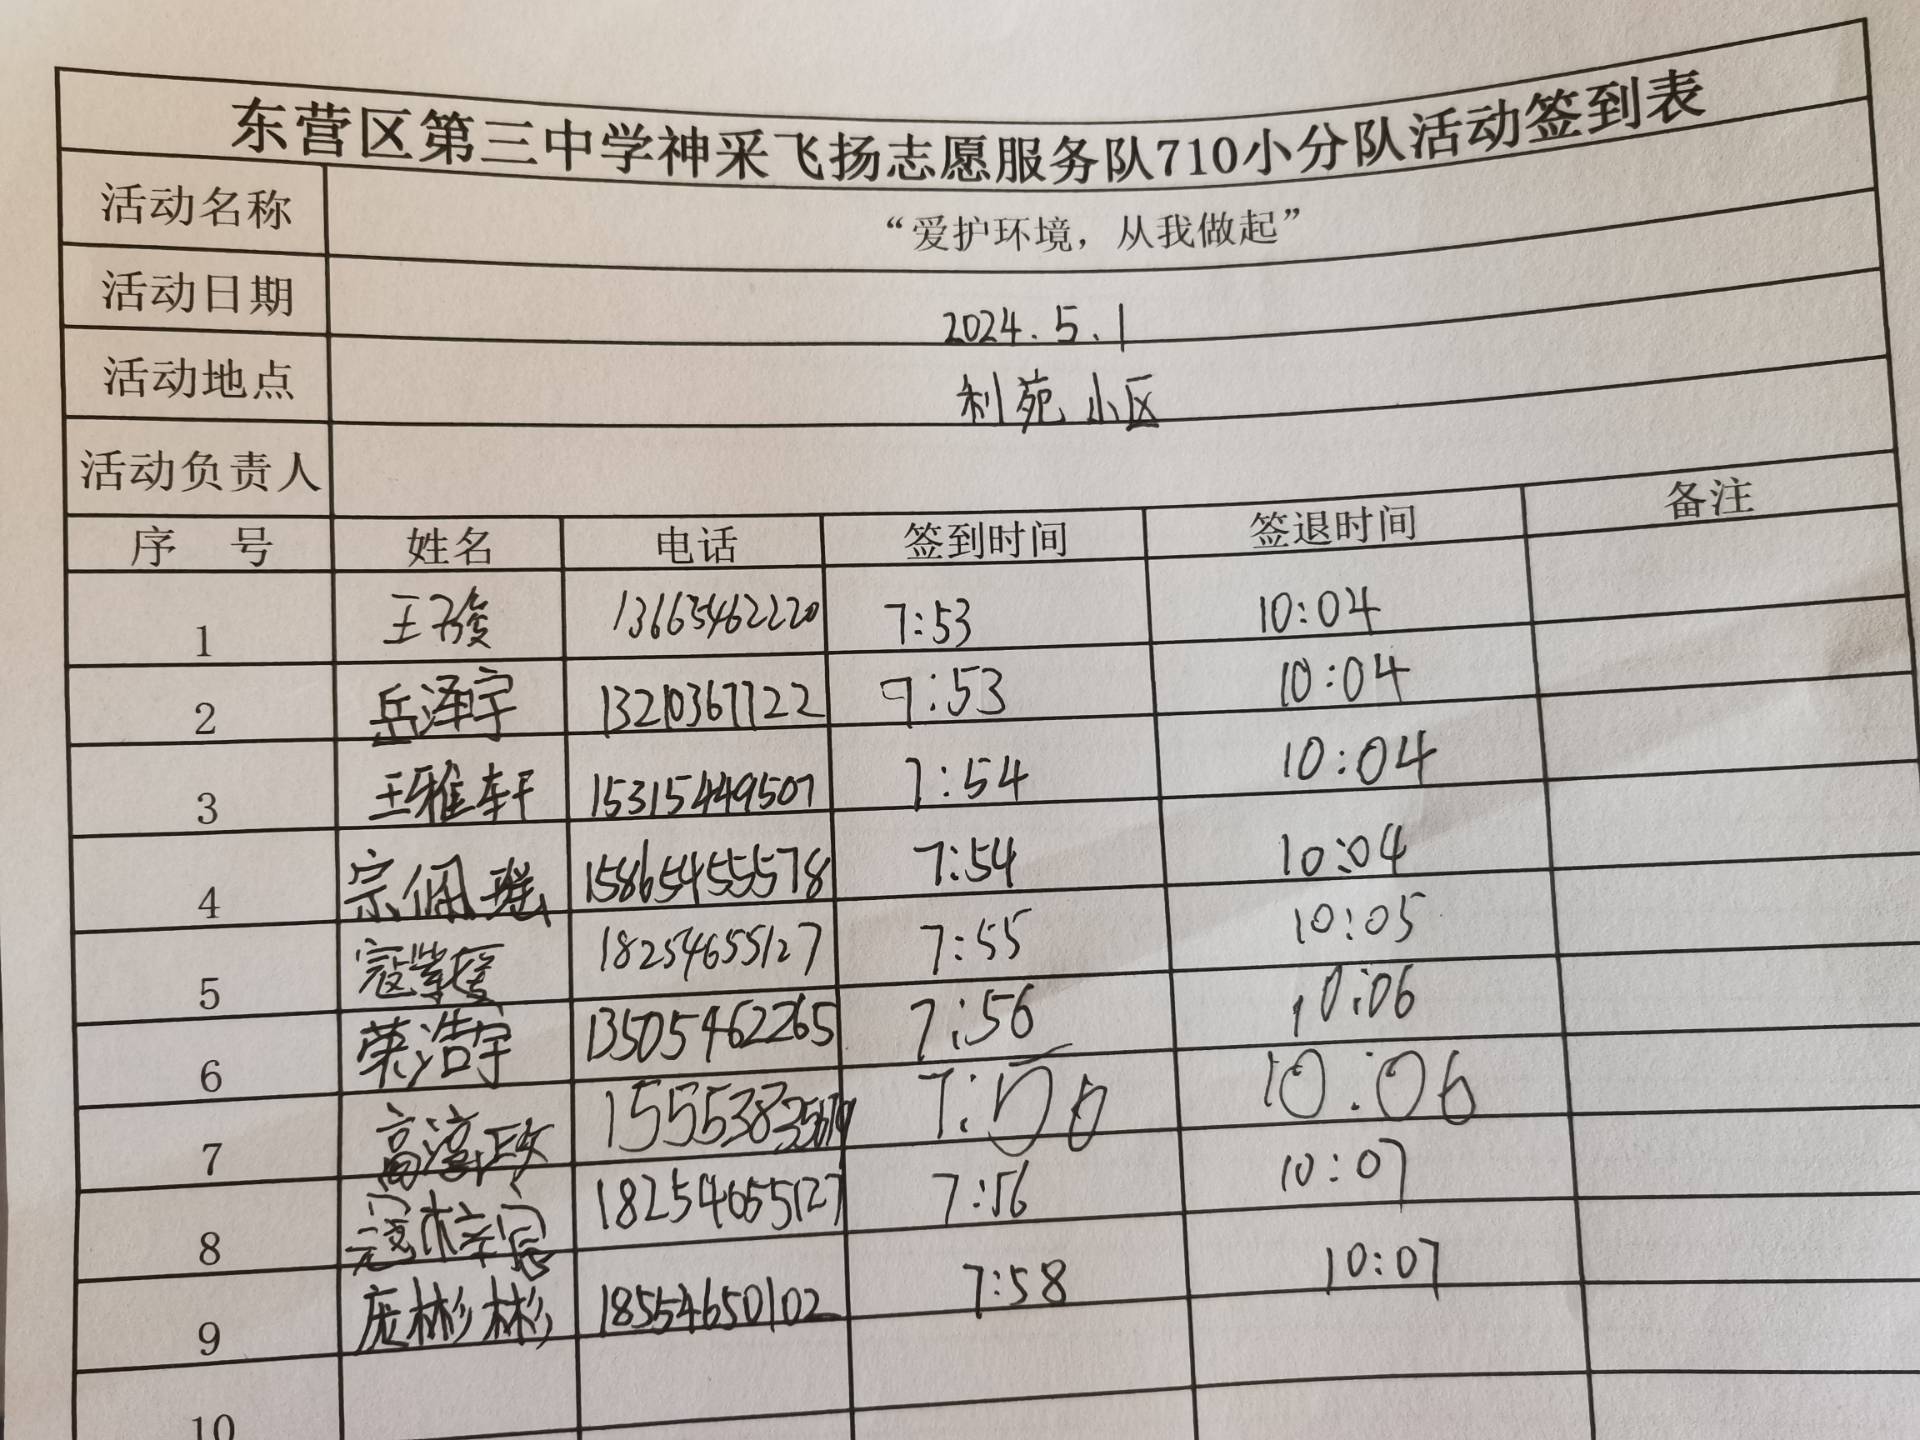 东营区第三中学神采飞扬志愿服务队710小分队活动签到表
活动名称 “爱护环境，从我做起”
活动日期 2024.5.1
活动地点 利苑小区
活动负责人
序 号 姓名 电话 签到时间 签退时间 备注
1 王子俊 13665462220 7:53 10:04
2 岳泽宇 13210367122 7:53 10:04
3 王雅轩 15315449507 7:54 10:04
4 宗佩瑶 15865455578 7:54 10:04
5 寇紫媛 18254655127 7:55 10:05
6 荣浩宇 13505462265 7:56 10:06
7 高淳政 7:56 10:06
8 寇梓宸 18254655127 7:56 10:07
9 庞彬彬 18554650102 7:58 10:07
10